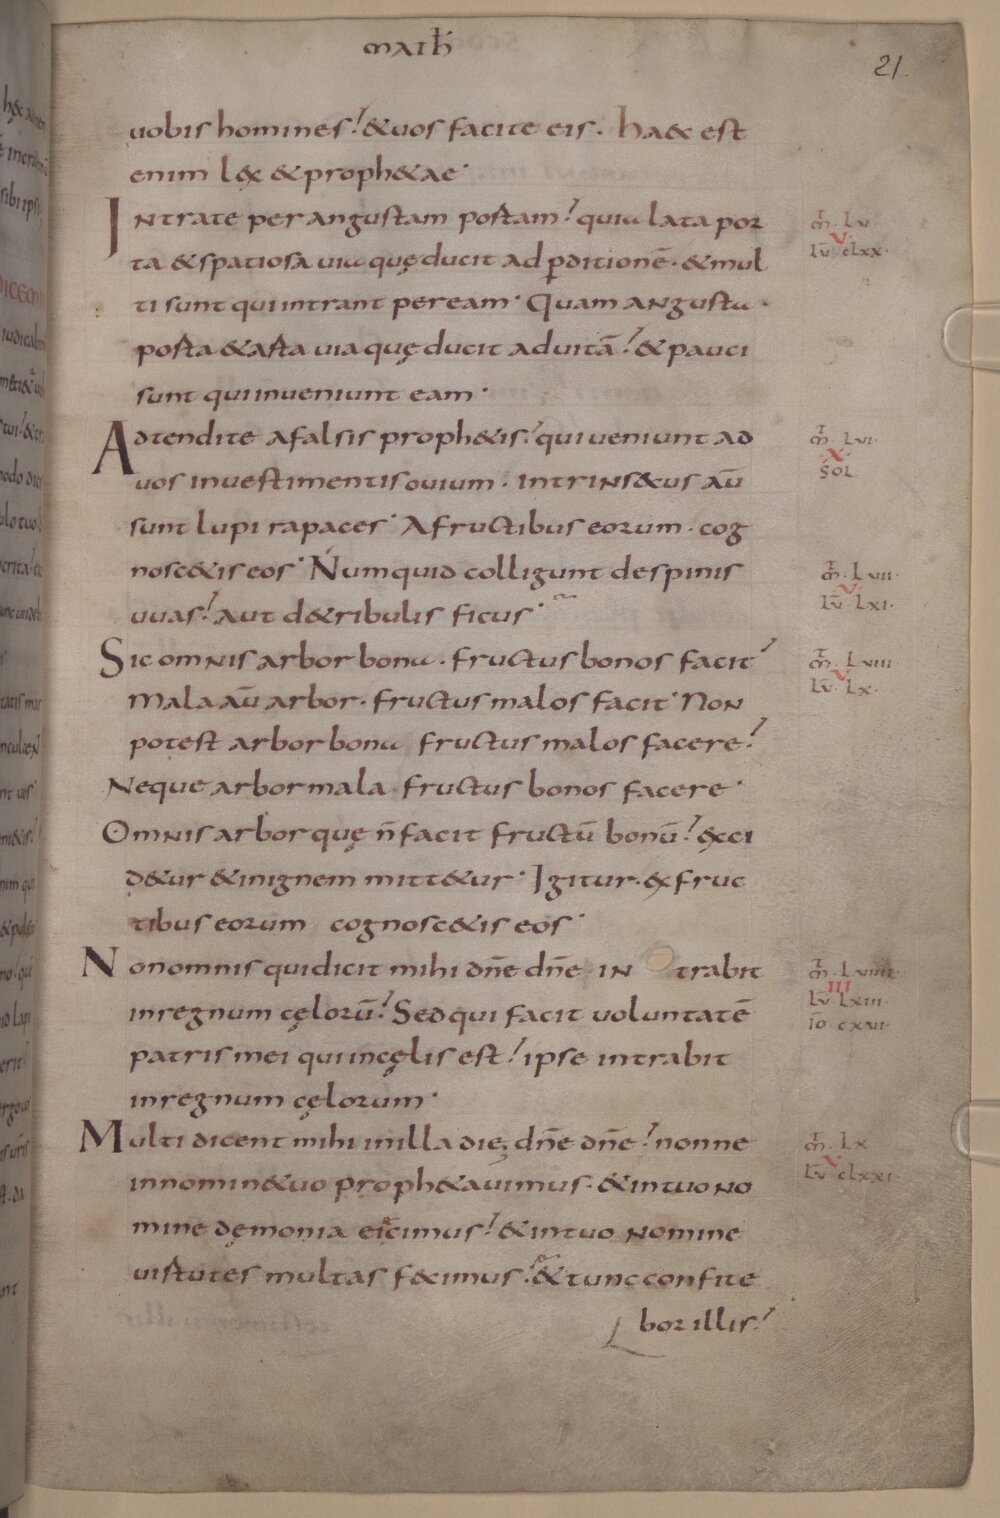 math
21.
uobis homines? & uos facite eis. Ha&c est
enim lex & proph&ae.
Intrate per angustam portam? quia lata por
ta & spatiosa uia quę ducit ad p̱ditionē. & mul
ti sunt qui intrant per eam. Quam angusta
porta & arta uia quę ducit ad uitā? & pauci
sunt qui inueniunt eam.
Adtendite a falsis proph&is? qui ueniunt ad
uos in uestimentis ouium. intrins&cus aū
sunt lupi rapaces. A fructibus eorum. cog
nosc&is eos. Numquid colligunt de spinis
uuas? aut d& ribulis ficus.
Sic omnis arbor bona. fructus bonos facit?
Mala aū arbor. fructus malos facit. Non
potest arbor bona fructus malos facere?
Neque arbor mala fructus bonos facere.
Omnis arbor quę n̄ facit fructū bonū? exci
d&ur & in ignem mitt&ur. Igitur. ex fruc
tibus eorum cognosc&is eos.
Non omnis qui dicit mihi dn̄e dn̄e. in trabit
in regnum cęlorū? Sed qui facit voluntatē
patris mei qui in cęlis est? ipse intrabit
in regnum cęlorum.
Multi dicent mihi in illa die; dn̄e dn̄e? nonne
in nomin& uo proph&auimus. & in tuo no
mine dęmonia eiecimus? & in tuo nomine
uirtutes multas fecimus? & tunc confite
bor illis?
m̄. Lv
V
Lū. cLxx.
m̄. Lvi.
X.
soL
m̄. Lvii.
V.
Lū. Lxi.
m̄. Lviii.
V
Lū. Lx.
m̄. Lviiii.
III
Lū. Lxiii.
iō. cxvi.
m̄. Lx
V
Lū. cLxxi